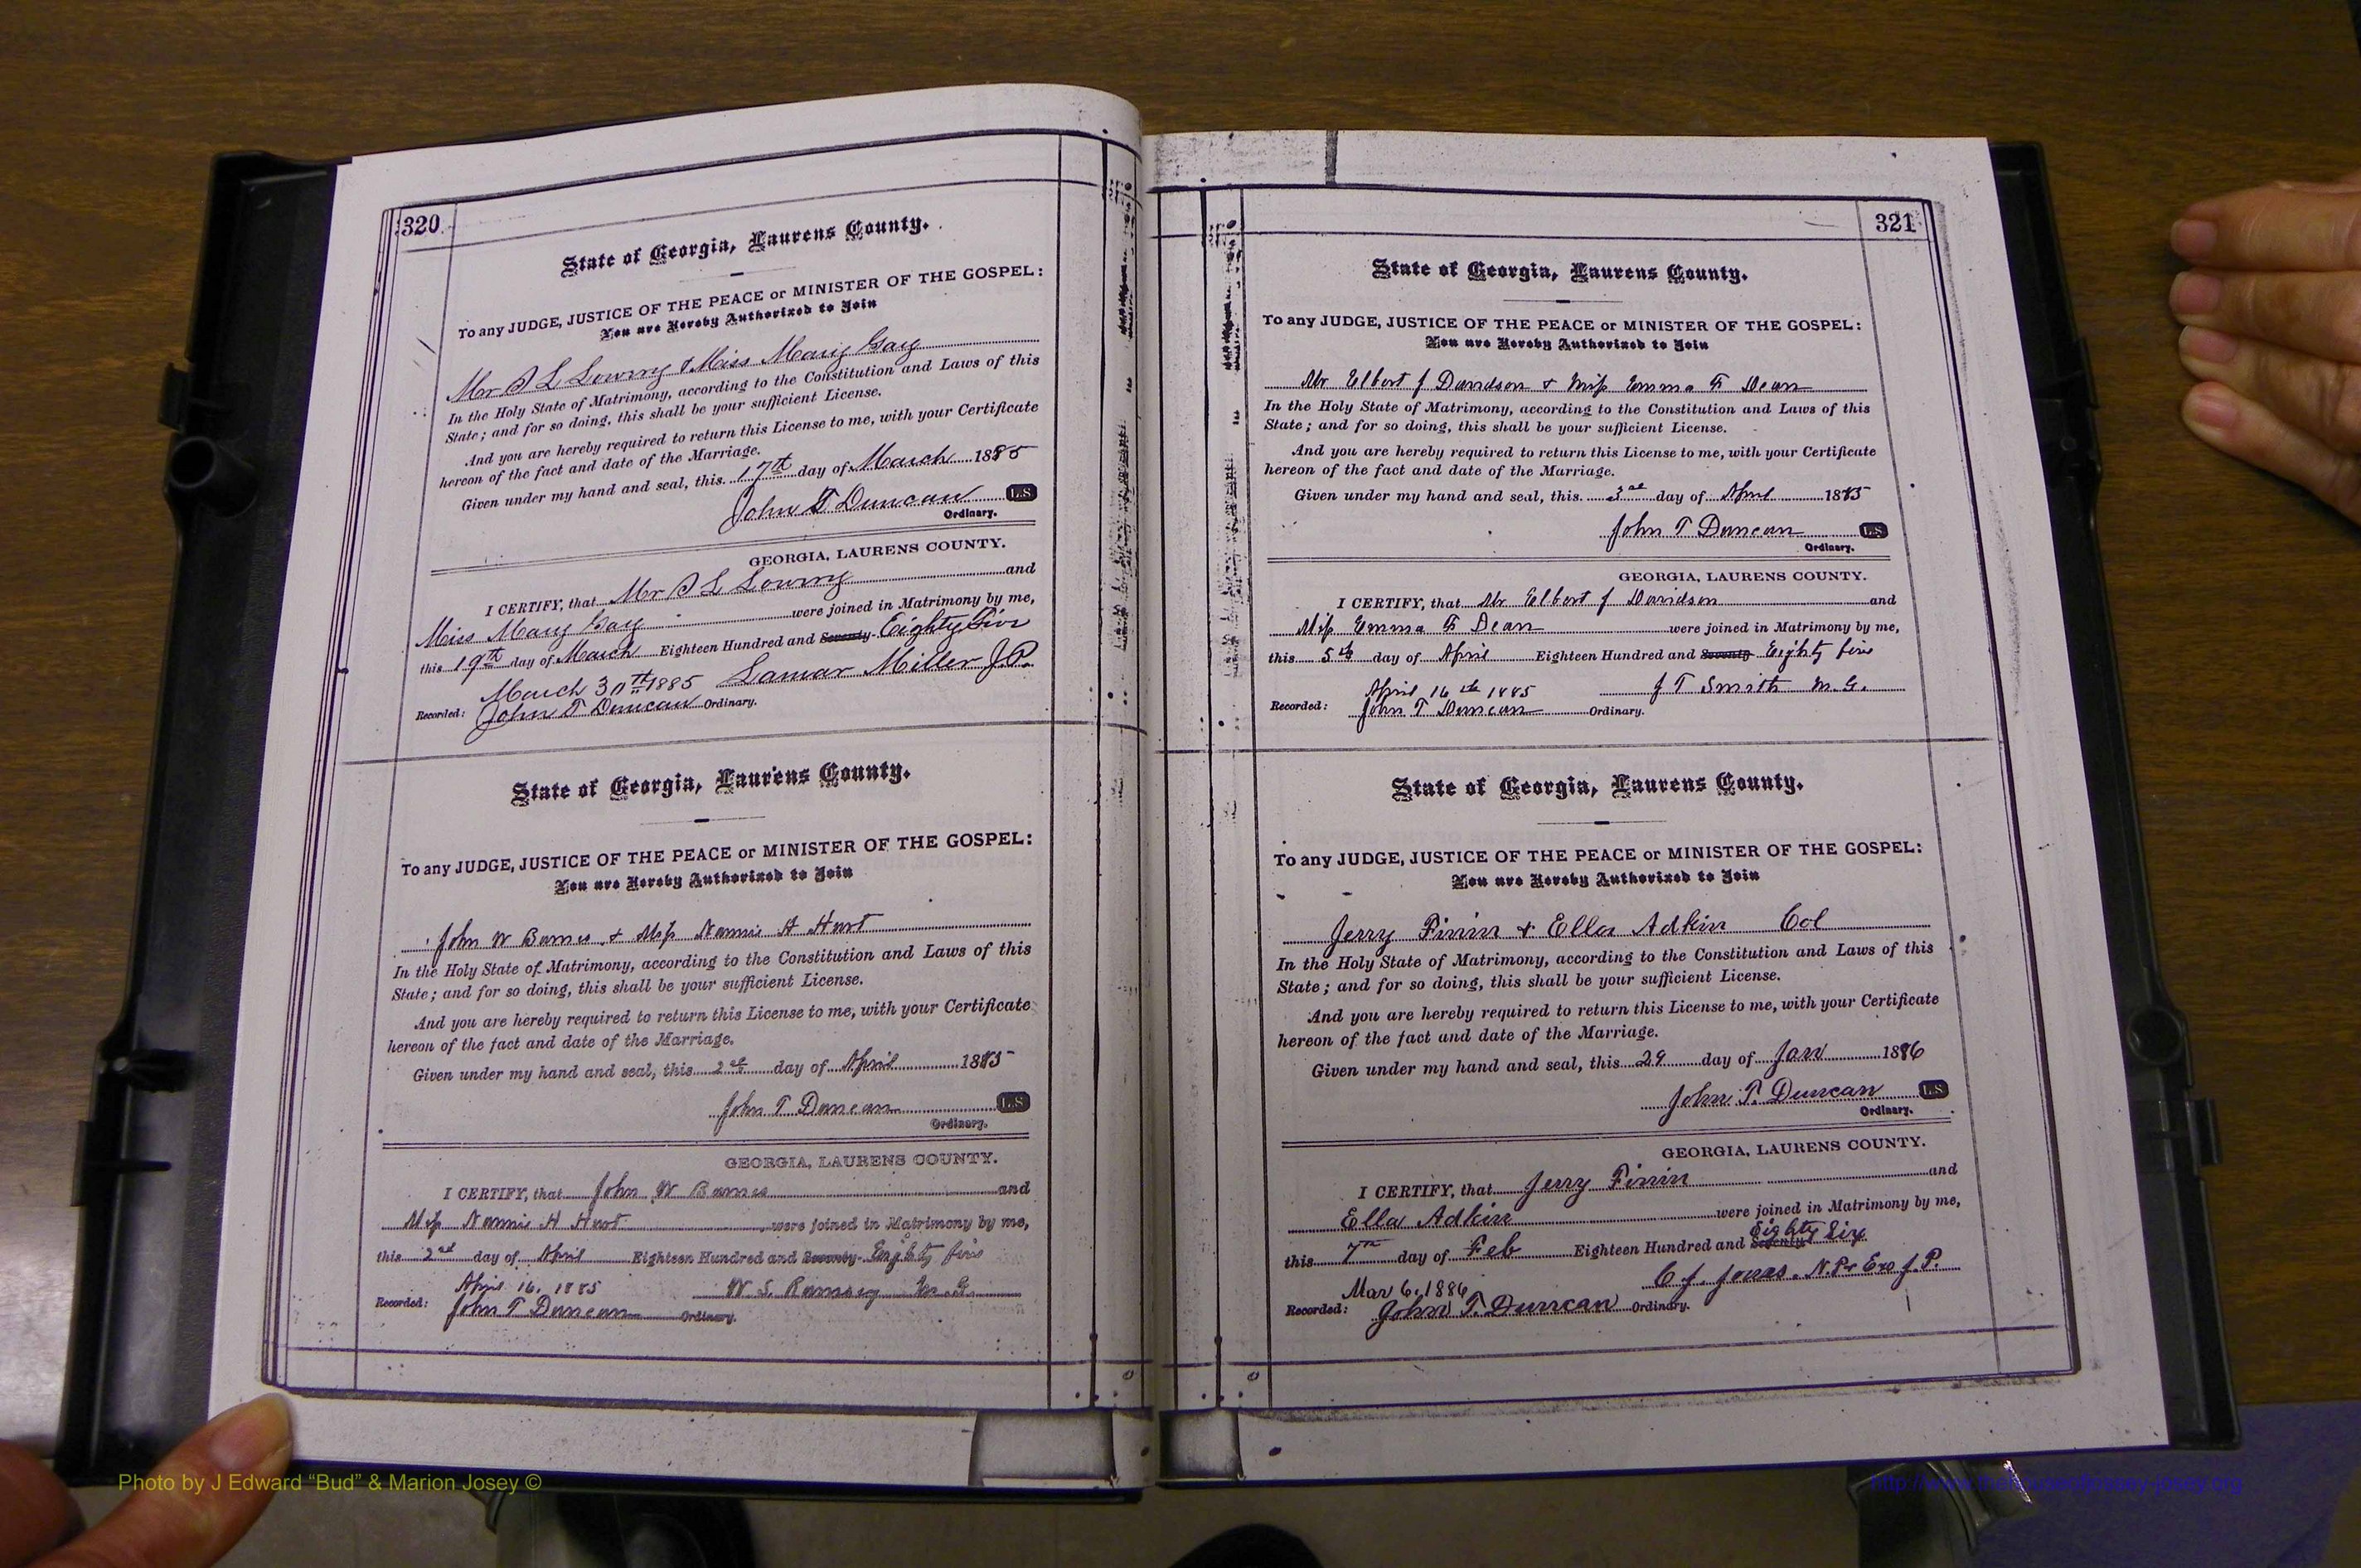 320
State of Georgia, Laurens County.
To any JUDGE, JUSTICE OF THE PEACE or MINISTER OF THE GOSPEL:
You are Hereby Authorized to Join
Mr L Lowry & Miss Mary Gay
In the Holy State of Matrimony, according to the Constitution and Laws of this
State; and for so doing, this shall be your sufficient License.
And you are hereby required to return this License to me, with your Certificate
hereon of the fact and date of the Marriage.
Given under my hand and seal, this 17th day of March 1885
John T Duncan L.S
Ordinary.
GEORGIA, LAURENS COUNTY.
I CERTIFY, that Mr L Lowry and
Miss Mary Gay were joined in Matrimony by me,
this 19th day of March Eighteen Hundred and Seventy- Eighty Five
March 30th 1885 Lamar Miller J.P.
Recorded: John T Duncan Ordinary.
State of Georgia, Laurens County.
To any JUDGE, JUSTICE OF THE PEACE or MINISTER OF THE GOSPEL:
You are Hereby Authorized to Join
John W & Miss Nannie H
In the Holy State of Matrimony, according to the Constitution and Laws of this
State; and for so doing, this shall be your sufficient License.
And you are hereby required to return this License to me, with your Certificate
hereon of the fact and date of the Marriage.
Given under my hand and seal, this 2nd day of April 1885
John T Duncan L.S
Ordinary.
GEORGIA, LAURENS COUNTY.
I CERTIFY, that John W and
Miss Nannie H were joined in Matrimony by me,
this 2nd day of April Eighteen Hundred and Seventy- Eighty five
April 16, 1885 W. S. Ramsey M.G.
Recorded: John T Duncan Ordinary.
321
State of Georgia, Laurens County.
To any JUDGE, JUSTICE OF THE PEACE or MINISTER OF THE GOSPEL:
You are Hereby Authorized to Join
Mr Elbert J Davidson & Miss Emma F Dean
In the Holy State of Matrimony, according to the Constitution and Laws of this
State; and for so doing, this shall be your sufficient License.
And you are hereby required to return this License to me, with your Certificate
hereon of the fact and date of the Marriage.
Given under my hand and seal, this 3rd day of April 1885
John T Duncan L.S
Ordinary.
GEORGIA, LAURENS COUNTY.
I CERTIFY, that Mr Elbert J Davidson and
Miss Emma F Dean were joined in Matrimony by me,
this 5th day of April Eighteen Hundred and Seventy Eighty five
April 16th 1885 J T Smith M.G.
Recorded: John T Duncan Ordinary.
State of Georgia, Laurens County.
To any JUDGE, JUSTICE OF THE PEACE or MINISTER OF THE GOSPEL:
You are Hereby Authorized to Join
Jerry & Ella Adkin Col
In the Holy State of Matrimony, according to the Constitution and Laws of this
State; and for so doing, this shall be your sufficient License.
And you are hereby required to return this License to me, with your Certificate
hereon of the fact and date of the Marriage.
Given under my hand and seal, this 29 day of Jan 1886
John T. Duncan L.S
Ordinary.
GEORGIA, LAURENS COUNTY.
I CERTIFY, that Jerry and
Ella Adkin were joined in Matrimony by me,
this 7th day of Feb Eighteen Hundred and Seventy Eighty Six
Mar 6, 1886 C. J. Jones. N.P & Exo J.P.
Recorded: John T. Duncan Ordinary.
Photo by J Edward “Bud” & Marion Josey ©